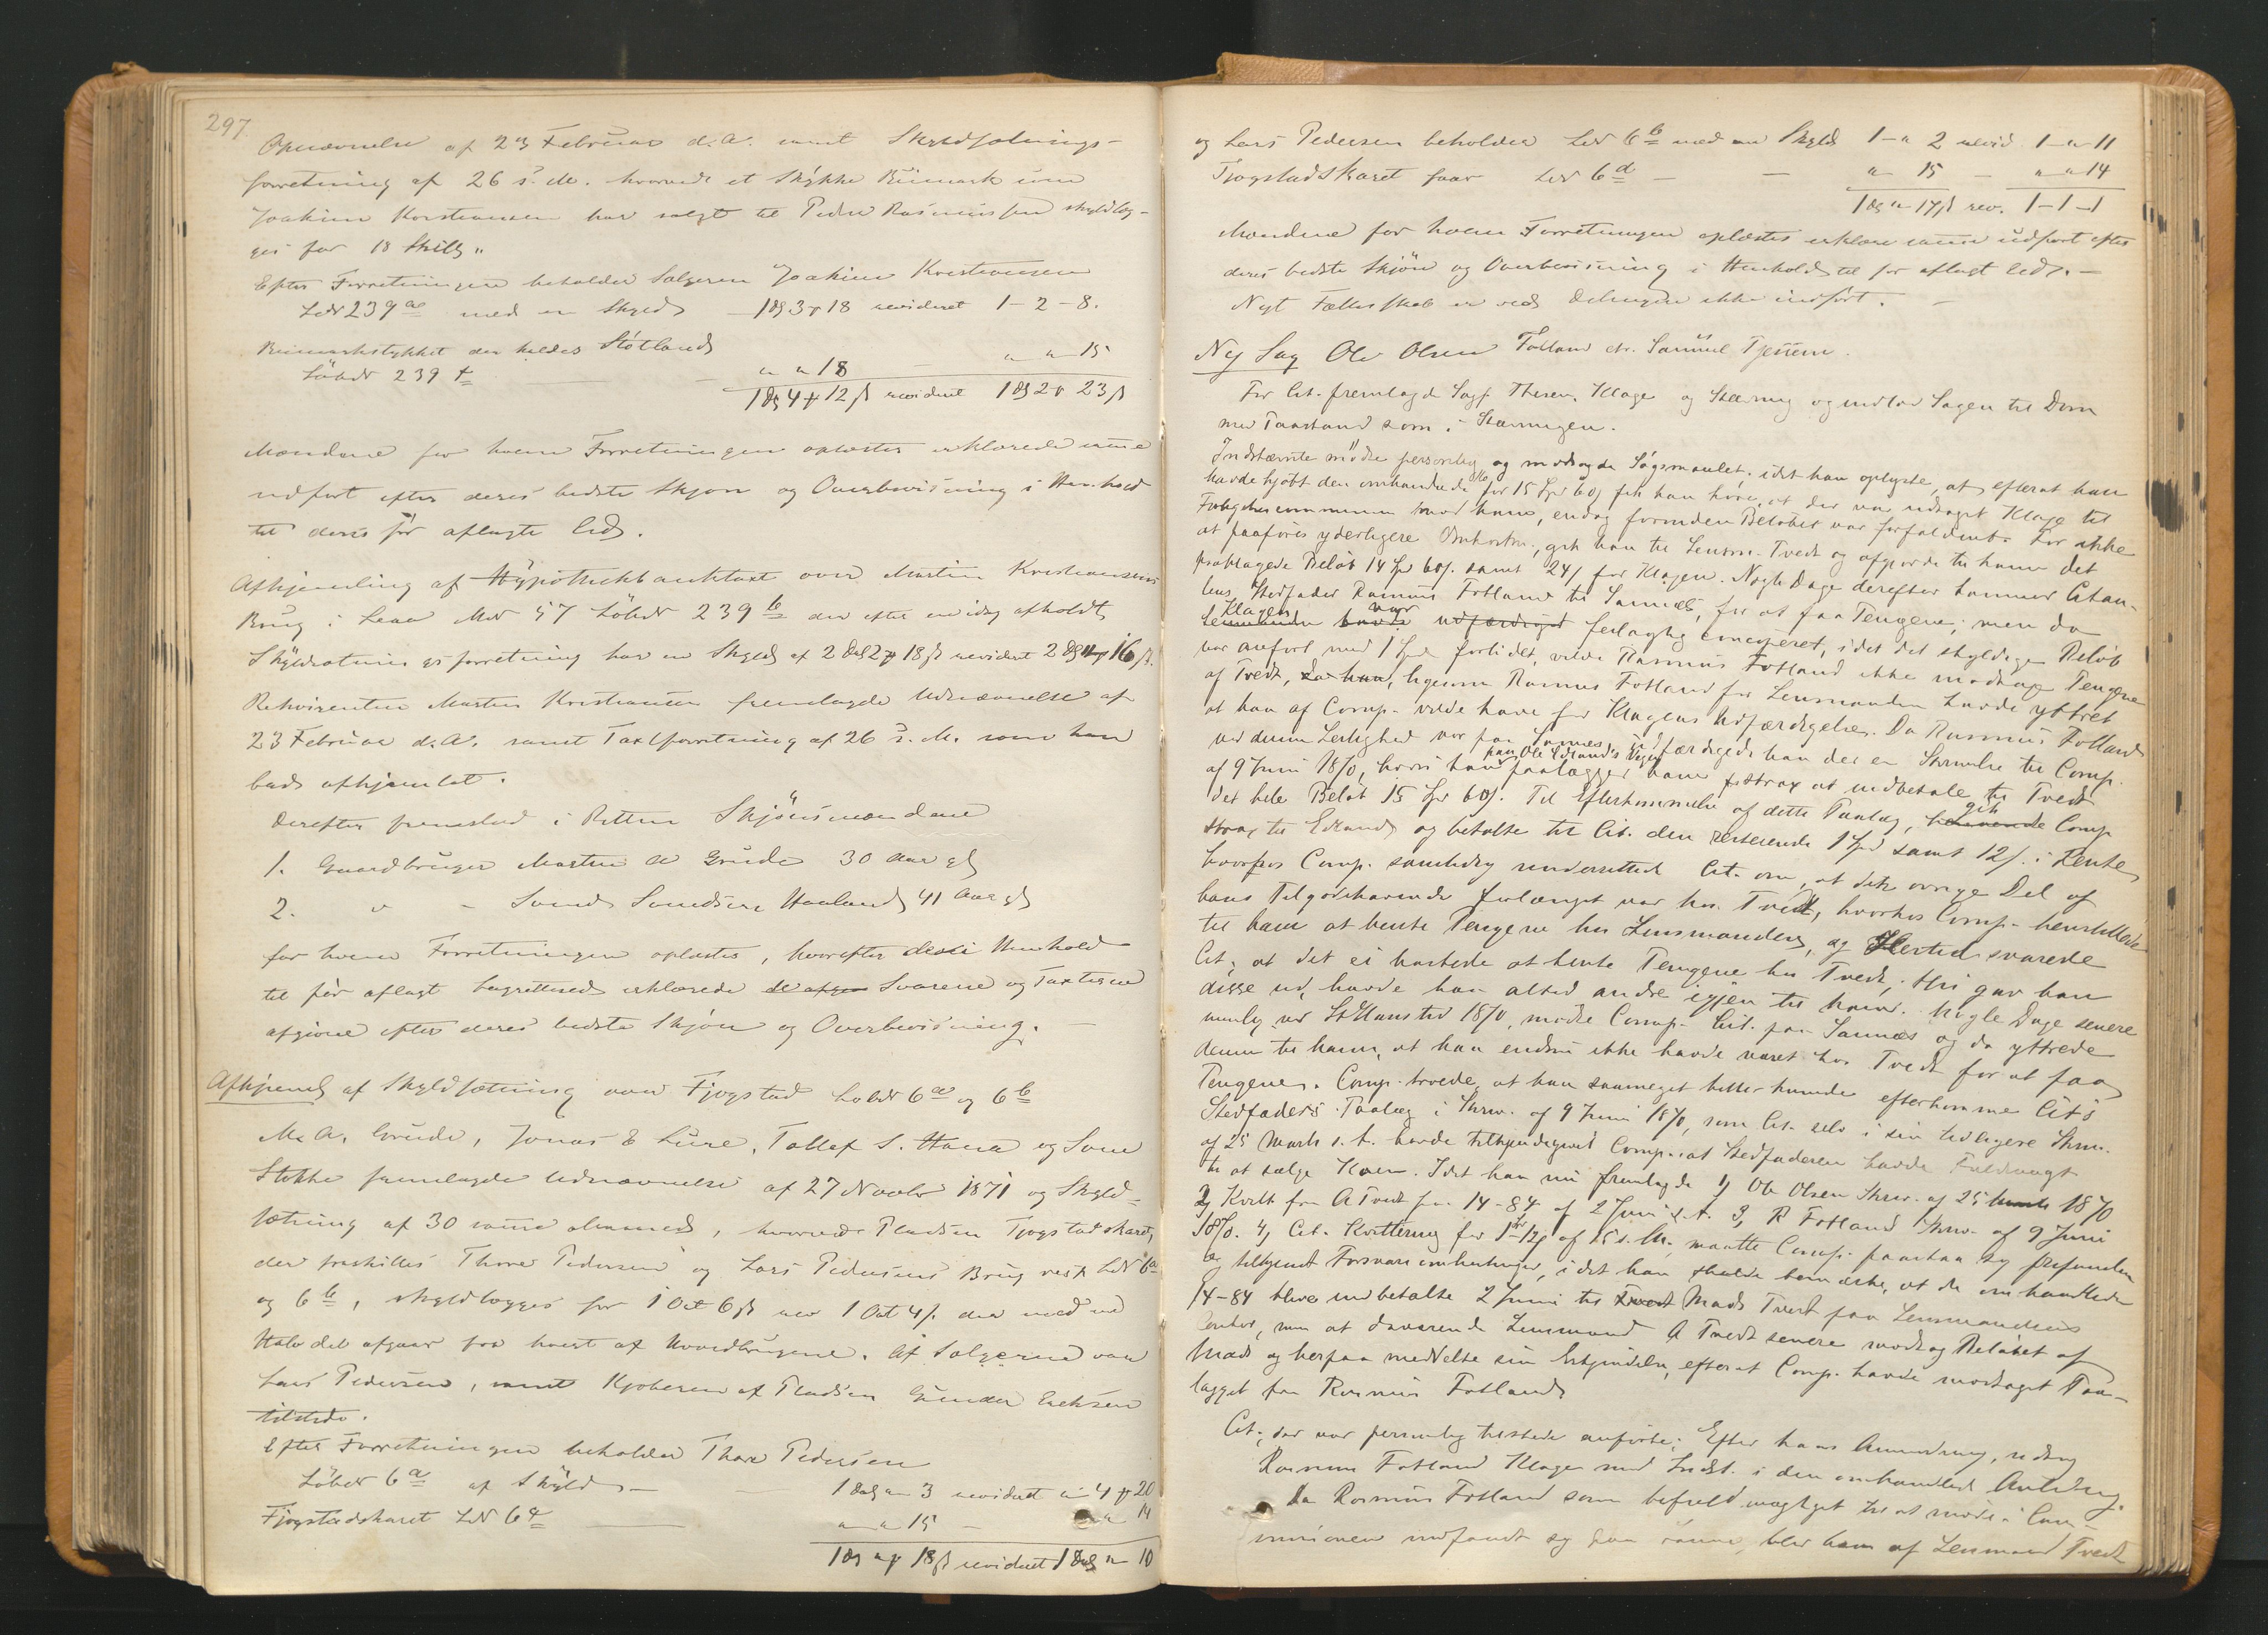 297
Opnævnelse af 23 Februar d.A. samt Skyldsætnings-
forretning af 26 s.M. hvorved et Stykke Buimark som
Joakim Kristiansen har solgt til Peder Rasmussen skyldlæg-
ges for 18 Skill,,
Efter Forretningen beholder Sælgeren Joakim Kristiansen
LøbN 239 a med en Skyld 1 D 3 # 18 revideret 1-2-8.
Buimarkstykket der kaldes Støtland
LøbN 239 " " 18 - " " 15
1 D 4 # 12 ß revideret 1 D 2 # 23 ß
Mændene for hvem Forretningen oplæstes erklærede samme
udført efter deres bedste Skjøn og Overbevisning i Henhold
til deres før aflagte Ed.
Afhjemling af Hypothekbanktaxt over Martin Kristiansens
Brug i Leaa MN 57 LøbN 239 b der efter en idag afholdt
Skyldsætningsforretning har en Skyld af 2 Dal 2 # 18 ß revideret 2 D 16 ß.
Rekvirenten Martin Kristiansen fremlagde Udnævnelse af
23 Februar d.A. samt Taxtforretning af 26 s.M. som han
bad afhjemlet.
Derefter fremstod i Retten Skjønsmændene
1. Gaardbruger Martin A Grude 30 Aar gl
2. " - Svend Svendsen Haaland 41 Aar gl
for hvem Forretningen oplæstes, hvorefter de i Henhold
til før aflagt Lagrettesed erklærede Svarene og Taxterne
afgivne efter deres bedste Skjøn og Overbevisning.
Afhjeml af Skyldsætning over Fjogstad LobN 6 a og 6 b
M. A. Grude, Jonas E Lure, Tollef S. Hana og Sven
Stokke fremlagde Udnævnelse af 27 Novbr 1871 og Skyld-
sætning af 30 samme Maaned, hvorved Pladsen Fjogstadskaret,
der fraskilles Thore Pedersens og Lars Pedersens Brug resp LN 6 a
og 6 b, skyldlægges for 1 Ort 6 ß rev 1 Ort 4 ß. der med en
Halvdel afgaar fra hvert af Hovedbrugene. Af Sælgerne var
Lars Pedersen, samt Kjøberen af Pladsen Gunder Eriksen
tilstede.
Efter Forretningen beholder Thore Pedersen
LøbN 6 a af Skyld - 1 Dal " 3 revideret " 4 # 20
Fjogstadskaret LN 6 c " " 15 - " 14
1 D " # 18 ß revideret 1 Dal " 10
og Lars Pedersen beholder LN 6 b med en Skyld 1 - " 2 revid. 1 - " 11
Fjogstadskaret faar LN 6 d - - " 15 - " " 14
1 D " 17 ß rev. 1-1-1
Mændene for hvem Forretningen oplæstes erklære samme udført efter
deres bedste Skjøn og Overbevisning i Henhold til før aflagt Ed. -
Nyt Fællesskab er ved Delingen ikke indført. -
Ny Sag Ole Olsen Fotland ctr. Samuel Tjessem.
For Cit. fremlagde Sagf. Thesen, Klage og Stævning og indlod Sagen til Dom
med Paastand som i Stævningen.
Indstævnte mødte personlig og modsagde Søgsmaalet; idet han oplyste, at efterat han
havde kjøbt den omhandlede Ko for 15 Spd 60 ß fik han høre, at der var udtaget Klage til
Forligelsescommissionen mod ham, endog forinden Beløbet var forfaldent. For ikke
at paaføres yderligere Omkostn., gik han til Lensm. Tvedt og afgjorde til ham det
paaklagede Beløb 14 Spd 60 ß. samt 24 ß for Klagen. Nogle Dage derefter kommer Citan-
tens Stedfader Rasmus Fotland til Sannæs, for at faa Pengene; men da
Klagen var feilagtig conciperet, idet det skyldige Beløb
var anført med 1 Spd forlidet, vilde Rasmus Fotland ikke modtage Pengene
af Tvedt, ligesom Rasmus Fotland for Lensmanden havde yttret
at han af Comp. vilde have for Klagens Udfærdigelse. Da Rasmus Fotland
ved denne Leilighed var paa Sannæs, udfærdigede han der en Skrivelse til Comp.
af 9 Juni 1870, hvori han paa Ole Edlands Vegne paalægger ham strax at indbetale til Tvedt
det hele Beløb 15 Spd 60 ß. Til Efterkommelse af dette Paalæg, gik Comp
strax til Edland og betalte til Cit. den resterende 1 Spd samt 12 ß. i Rente
hvorhos Comp. samtidig underrettede Cit. om, at den øvrige Del af
hans Tilgodehavende forlængst var hos Tvedt, hvorhos Comp. henstillede
til ham at hente Pengene hos Lensmanden, og Hertil svarede
Cit., at det ei hastede at hente Pengene hos Tvedt, thi gav han
disse ud, havde han altid andre igjen til ham. Nogle Dage senere
nemlig ved StHanstid 1870, mødte Comp. Cit. paa Sannæs og da yttrede
denne til ham, at han endnu ikke havde været hos Tvedt for at faa
Pengene. Comp. troede, at han saameget bedre kunde efterkomme Cit's
Stedfaders Paalæg i Skriv. af 9 Juni 1870, som Cit. selv i sin tidligere Skriv.
af 25 Marts s. A. havde tilkjendegivet Comp. at Stedfaderen havde Fuldmagt
til at sælge Koen. Idet han nu fremlagde 1) Ole Olsen Skriv. af 25 Marts 1870
2) Kvitt. fra A Tvedt for 14-84 af 2 Juni s. A. 3, R Fotland Skriv. af 9 Juni
1870. 4, Cit. Kvittering for 1-12 ß af 15 s. M., maatte Comp. paastaa sig frifunden
og tilkjendt Forsvarsomkostninger, idet han skulde bemærke, at de omhandlede
14-84 bleve indbetalte 2 Juni til Mads Tvedt paa Lensmandens
Contor, men at daværende Lensmand A Tvedt senere modtog Beløbet af
Mads og herpaa meddelte sin Erkjendelse, efterat Comp. havde modtaget Paa-
lægget fra Rasmus Fotland
Cit., der var personlig tilstede anførte; Efter hans Anmodning, udtog
Rasmus Fotland Klage mod Indst. i den omhandlede Anledning.
Da Rasmus Fotland som befuldmægtiget til at møde i Com-
missionen indfandt sig paa samme, blev ham af Lensmand Tvedt